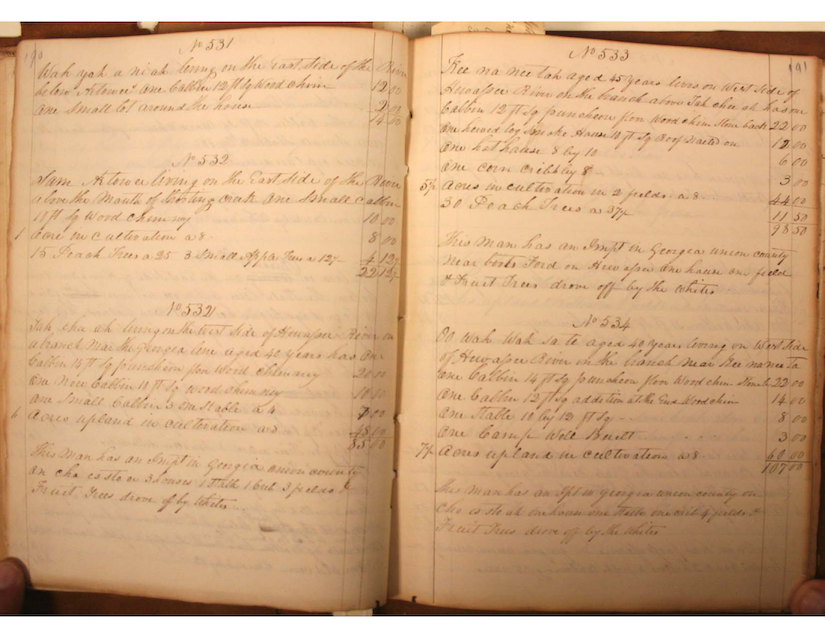 190
No 531
Wah yah a ni ah living on the East side of the River
below Altowee one Cabbin 12 ft Sq Wood chim 12 00
one Small lot around the house 2 00
14 00
No 532
Sam Altowee living on the East side of the River
above the Mouth of Shooting creek one Small Cabbin
11 ft Sq Wood Chimney 10 00
1 Acre in cultivation a 8 8 00
15 Peach Trees a 25 3 Small Apple Trees a 12½ 4 12½
22 12½
No 532
Tah chu ah living on the West side of Hewassee River on
a branch Near the Georgia line aged 40 years has one
Cabbin 14 ft Sq puncheon floor Wood Chimney 20 00
one New Cabbin 11 ft Sq Wood chimney 10 00
one Small Cabbin 3 one Stable a 4 7 00
6 Acres upland in cultivation a 8 48 00
85 00
This Man has an Impt in Georgia union county
on 3 houses 1 Stable 1 Crib 3 fields &
Fruit Trees drove off by Whites
191
No 533
Kee na nee tah aged 45 years lives on West side of
Hewassee River on the branch above Tah chu ah has one
Cabbin 12 ft Sq puncheon floor Wood chim Stone back 22 00
one hewed log Smoke House 11 ft Sq Roof Nailed on 12 00
One hot house 8 by 10 6 00
one corn crib 6 by 8 3 00
5½ Acres in cultivation in 2 fields a 8 44 00
30 Peach Trees a 37½ 11 50
98 50
This Man has an Impt in Georgia union county
Near Ford on Hewassee One house one field
& Fruit Trees drove off by the Whites
No 534
Oo wah Wah Sa te aged 40 years living on West side
of Hewassee River on the branch Near Kee na nee ta
one Cabbin 14 ft Sq puncheon floor Wood chim Stone b 22 00
one Cabbin 12 ft Sq addition at the End Wood chim 14 00
One Stable 10 by 12 ft Sq 8 00
One Camp Well Built 3 00
7½ Acres upland in cultivation a 8 60 00
107 00
This Man has an Ipt in Georgia union county on
one house one Stable one crib 4 fields &
Fruit Trees drove off by the Whites